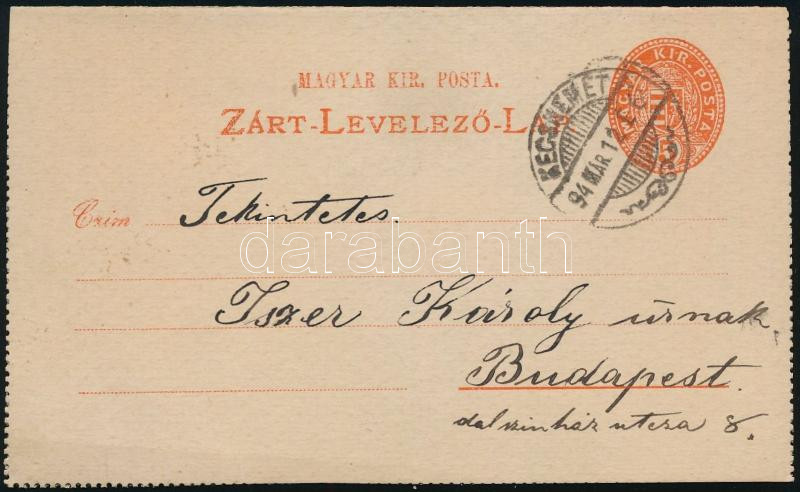 MAGYAR KIR. POSTA.
ZÁRT-LEVELEZŐ-LAP
MAGYAR KIR. POSTA
KECSKEMÉT
94 MÁR 1
Czim
Tekintetes
darabanth
Iszer Károly úrnak
Budapest.
dalszinház utcza 8.